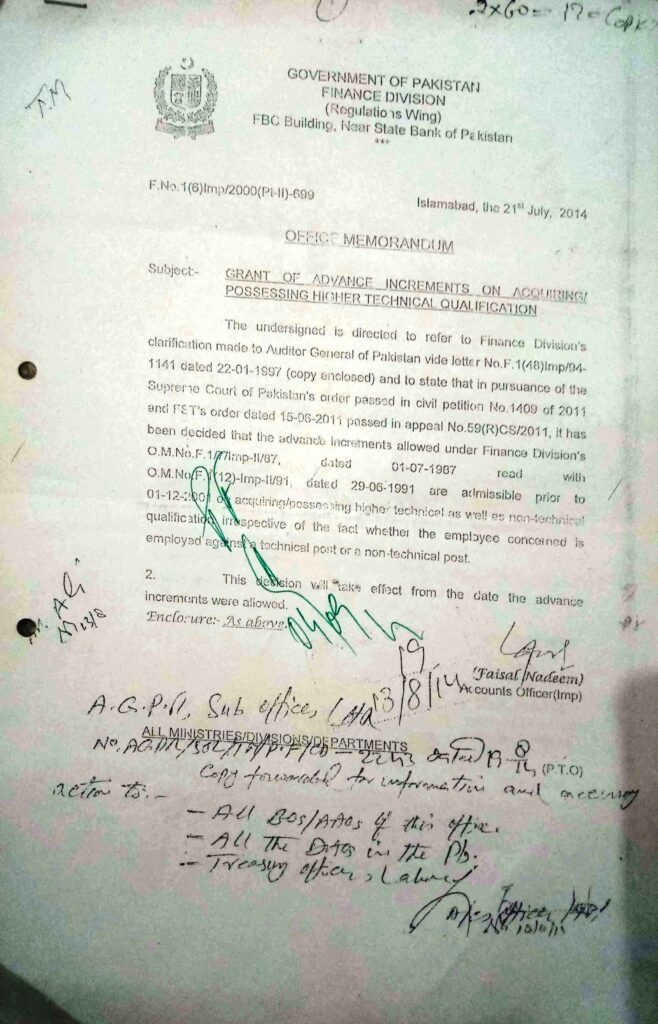 1
2x60=
T.M
GOVERNMENT OF PAKISTAN
FINANCE DIVISION
(Regulations Wing)
FBC Building, Near State Bank of Pakistan
***
F.No.1(6)Imp/2000(PI-II)-699
Islamabad, the 21st July, 2014
OFFICE MEMORANDUM
Subject:- GRANT OF ADVANCE INCREMENTS ON ACQUIRING/
POSSESSING HIGHER TECHNICAL QUALIFICATION
The undersigned is directed to refer to Finance Division's
clarification made to Auditor General of Pakistan vide letter No.F.1(48)Imp/94-
1141 dated 22-01-1997 (copy enclosed) and to state that in pursuance of the
Supreme Court of Pakistan's order passed in civil petition No.1409 of 2011
and FST's order dated 15-06-2011 passed in appeal No.59(R)CS/2011, it has
been decided that the advance increments allowed under Finance Division's
O.M.No.F.1/ /Imp-II/87, dated 01-07-1987 read with
O.M.No.F. (12)-Imp-II/91, dated 29-06-1991 are admissible prior to
01-12-2001 on acquiring/possessing higher technical as well as non-technical
qualification irrespective of the fact whether the employee concerned is
employed against a technical post or a non-technical post.
2. This decision will take effect from the date the advance
increments were allowed.
Enclosure:- As above.
(Faisal Nadeem)
Accounts Officer(Imp)
13/8/14
A.G.P.R, Sub office,
ALL MINISTRIES/DIVISIONS/DEPARTMENTS
(P.T.O)
Copy forwarded for information and necessary
action to:-
- All BOs/AAOs of this office.
- All the DAOs in the Pb.
- Treasury officer, Lahore